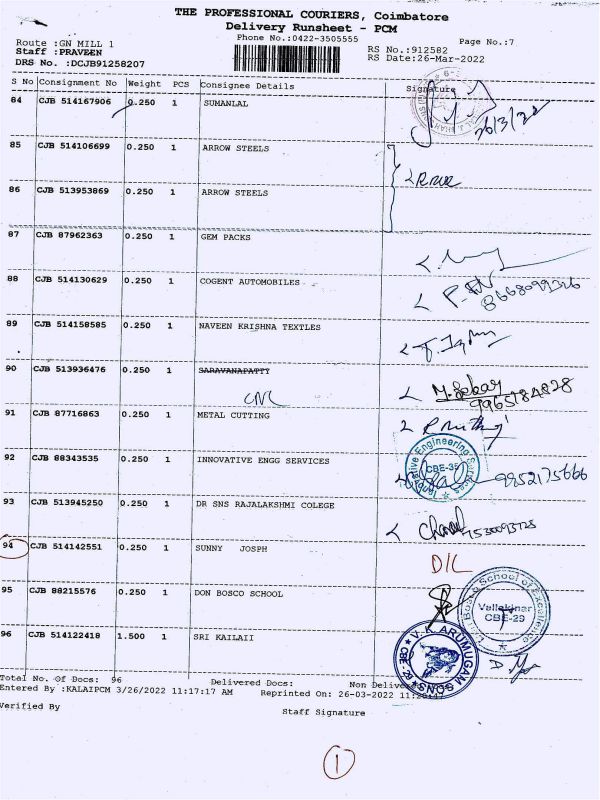 THE PROFESSIONAL COURIERS, Coimbatore
Delivery Runsheet - PCM
Phone No.:0422-3505555
Page No.:7
Route :GN MILL 1
RS No.:912582
Staff :PRAVEEN
RS Date:26-Mar-2022
DRS No. :DCJB91258207
S No Consignment No Weight PCS Consignee Details Signature
84 CJB 514167906 0.250 1 SUMANLAL
26/3/22
85 CJB 514106699 0.250 1 ARROW STEELS
86 CJB 513953869 0.250 1 ARROW STEELS
87 CJB 87962363 0.250 1 GEM PACKS
88 CJB 514130629 0.250 1 COGENT AUTOMOBILES
89 CJB 514158585 0.250 1 NAVEEN KRISHNA TEXTLES
90 CJB 513936476 0.250 1 SARAVANAPATTY
CNL
91 CJB 87716863 0.250 1 METAL CUTTING
92 CJB 88343535 0.250 1 INNOVATIVE ENGG SERVICES
Engineering Services
CBE-35
9852175666
93 CJB 513945250 0.250 1 DR SNS RAJALAKSHMI COLEGE
94 CJB 514142551 0.250 1 SUNNY JOSPH
D/L
95 CJB 88215576 0.250 1 DON BOSCO SCHOOL
Don Bosco School of Excellence
Vellakinar
CBE-29
96 CJB 514122418 1.500 1 SRI KAILAII
V.K ARUMUGAM SONS
Total No. Of Docs: 96 Delivered Docs: Non Delivered
Entered By :KALAIPCM 3/26/2022 11:17:17 AM Reprinted On: 26-03-2022
Verified By
Staff Signature
1